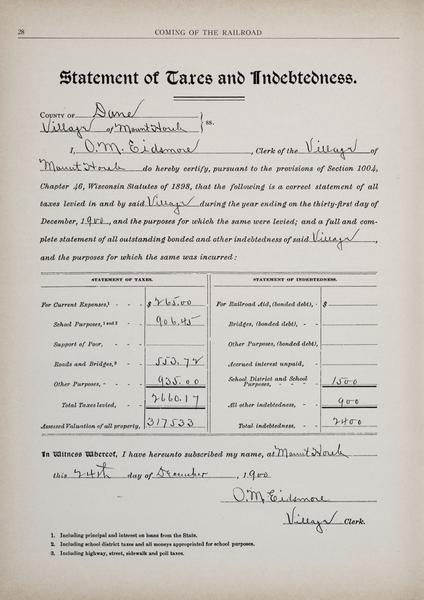 28
COMING OF THE RAILROAD
Statement of Taxes and Indebtedness.
COUNTY OF Dane
Village of Mount Horeb } ss.
I, O. M. Eidsmore, Clerk of the Village of
Mount Horeb do hereby certify, pursuant to the provisions of Section 1004,
Chapter 46, Wisconsin Statutes of 1898, that the following is a correct statement of all
taxes levied in and by said Village during the year ending on the thirty-first day of
December, 1900, and the purposes for which the same were levied; and a full and com-
plete statement of all outstanding bonded and other indebtedness of said Village,
and the purposes for which the same was incurred:
STATEMENT OF TAXES.
For Current Expenses,¹ - - - $ 265.00
School Purposes,¹ ᵃⁿᵈ ² - - 906.45
Support of Poor, - - -
Roads and Bridges,³ - - 553.72
Other Purposes, - - - - 935.00
Total Taxes levied, - - 2660.17
Assessed Valuation of all property, 317533
STATEMENT OF INDEBTEDNESS.
For Railroad Aid, (bonded debt), - $
Bridges, (bonded debt), - -
Other Purposes, (bonded debt),
Accrued interest unpaid, - -
School District and School
Purposes, - - - - 1500
All other indebtedness, - - 900
Total indebtedness, - - 2400
In Witness Whereof, I have hereunto subscribed my name, at Mount Horeb
this 24th day of December, 1900
O. M. Eidsmore
Village Clerk.
1. Including principal and interest on loans from the State.
2. Including school district taxes and all moneys appropriated for school purposes.
3. Including highway, street, sidewalk and poll taxes.